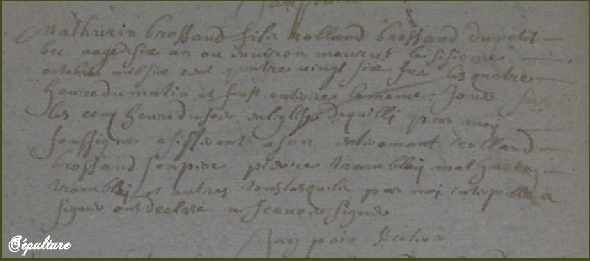 Mathurin brossaud fils rolland brossaud du petit
bec aagé de six an ou environ mourut le sisieme
octobre mil six cent quatre vingt six sur les quatre
heure du matin et fust enterré le mesme jour
les cinq heure du soir en leglise de quilli par moy
soussigné asistent a son enteremant rolland
brossaud son pere pierre tramblay mathurin
tramblay et autres tous lesquels par moi interpelle a
signer ont declaré ne scavoir signé
Jan
Sépulture